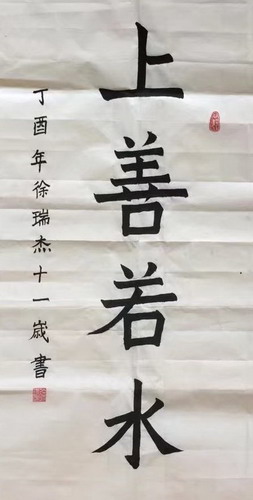 上善若水
丁酉年徐瑞杰十一歲書